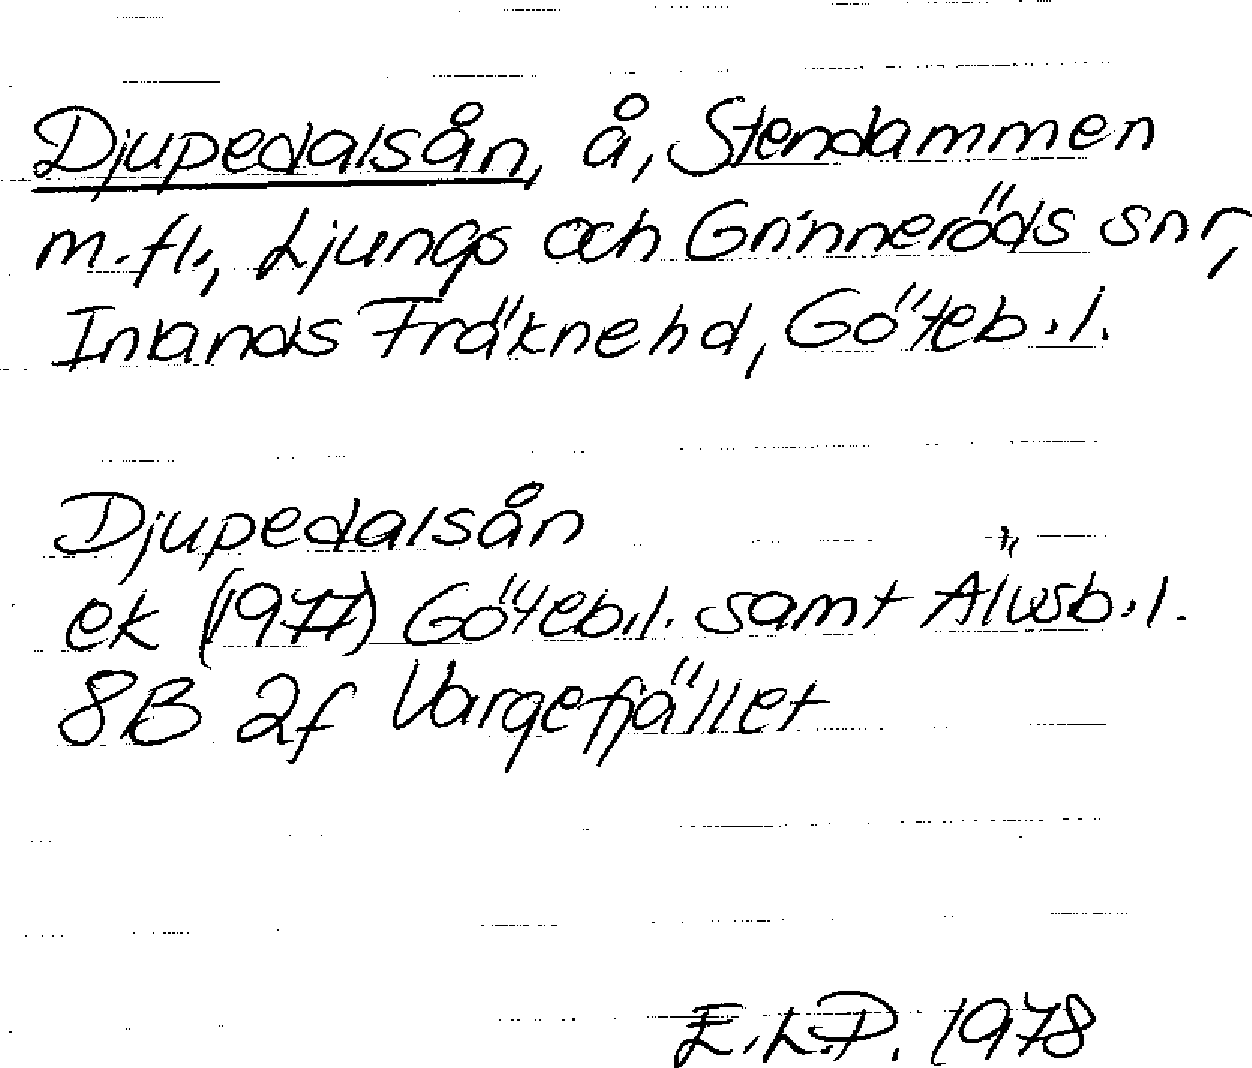 Djupedalsån, å, Stendammen
m.fl., Ljungs och Grinneröds snr,
Inlands Fräknehd, Göteb.l.
Djupedalsån
ek (1977) Göteb.l. samt Älvsb.l.
8B 2f Vargefjället
E.L.P. 1978